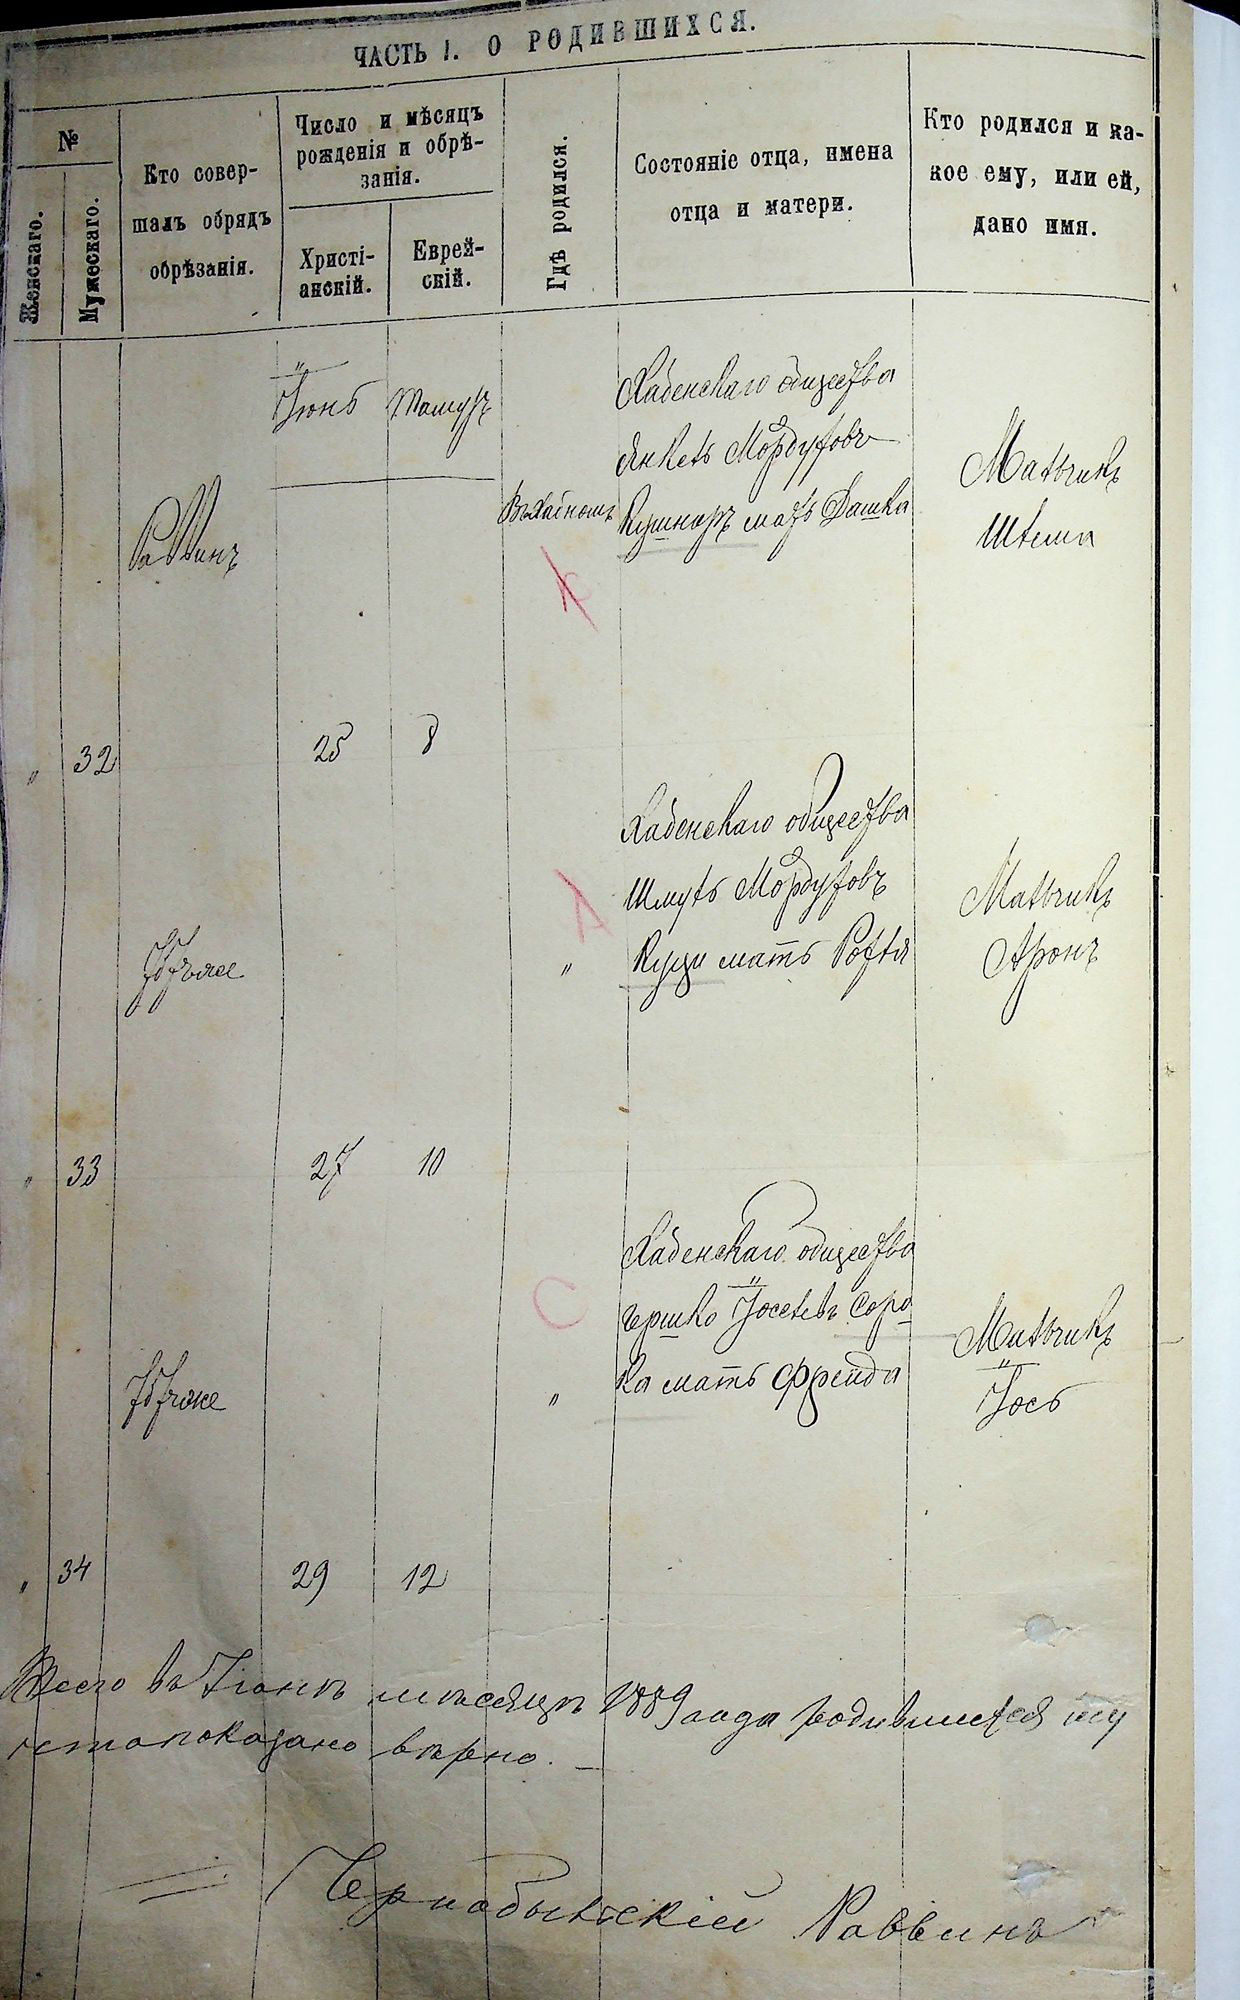 ЧАСТЬ I. О РОДИВШИХСЯ.
№
Женскаго.
Мужескаго.
Кто совер-
шалъ обрядъ
обрѣзанія.
Число и мѣсяцъ
рожденія и обрѣ-
занія.
Христі-
анскій.
Еврей-
скій.
Гдѣ родился.
Состояніе отца, имена
отца и матери.
Кто родился и ка-
кое ему, или ей,
дано имя.
Іюнь
Тамузъ
Раввинъ
Въ Хабномъ
Хабенскаго общества
Янкель Мордуховъ
Кушниръ мать Дашка
Мальчикъ
" 32
25
8
Хабенскаго общества
Шмуль Мордуховъ
мать Рохля
"
Мальчикъ
Аронъ
" 33
27
10
Хабенскаго общества
Гершко Іоселевъ Соро
ка мать Фрейда
"
Мальчикъ
Іось
" 34
29
12
Всего въ Іюнѣ мѣсяцѣ 1889 года родившихся
показано вѣрно.
Чернобыльскій Раввинъ